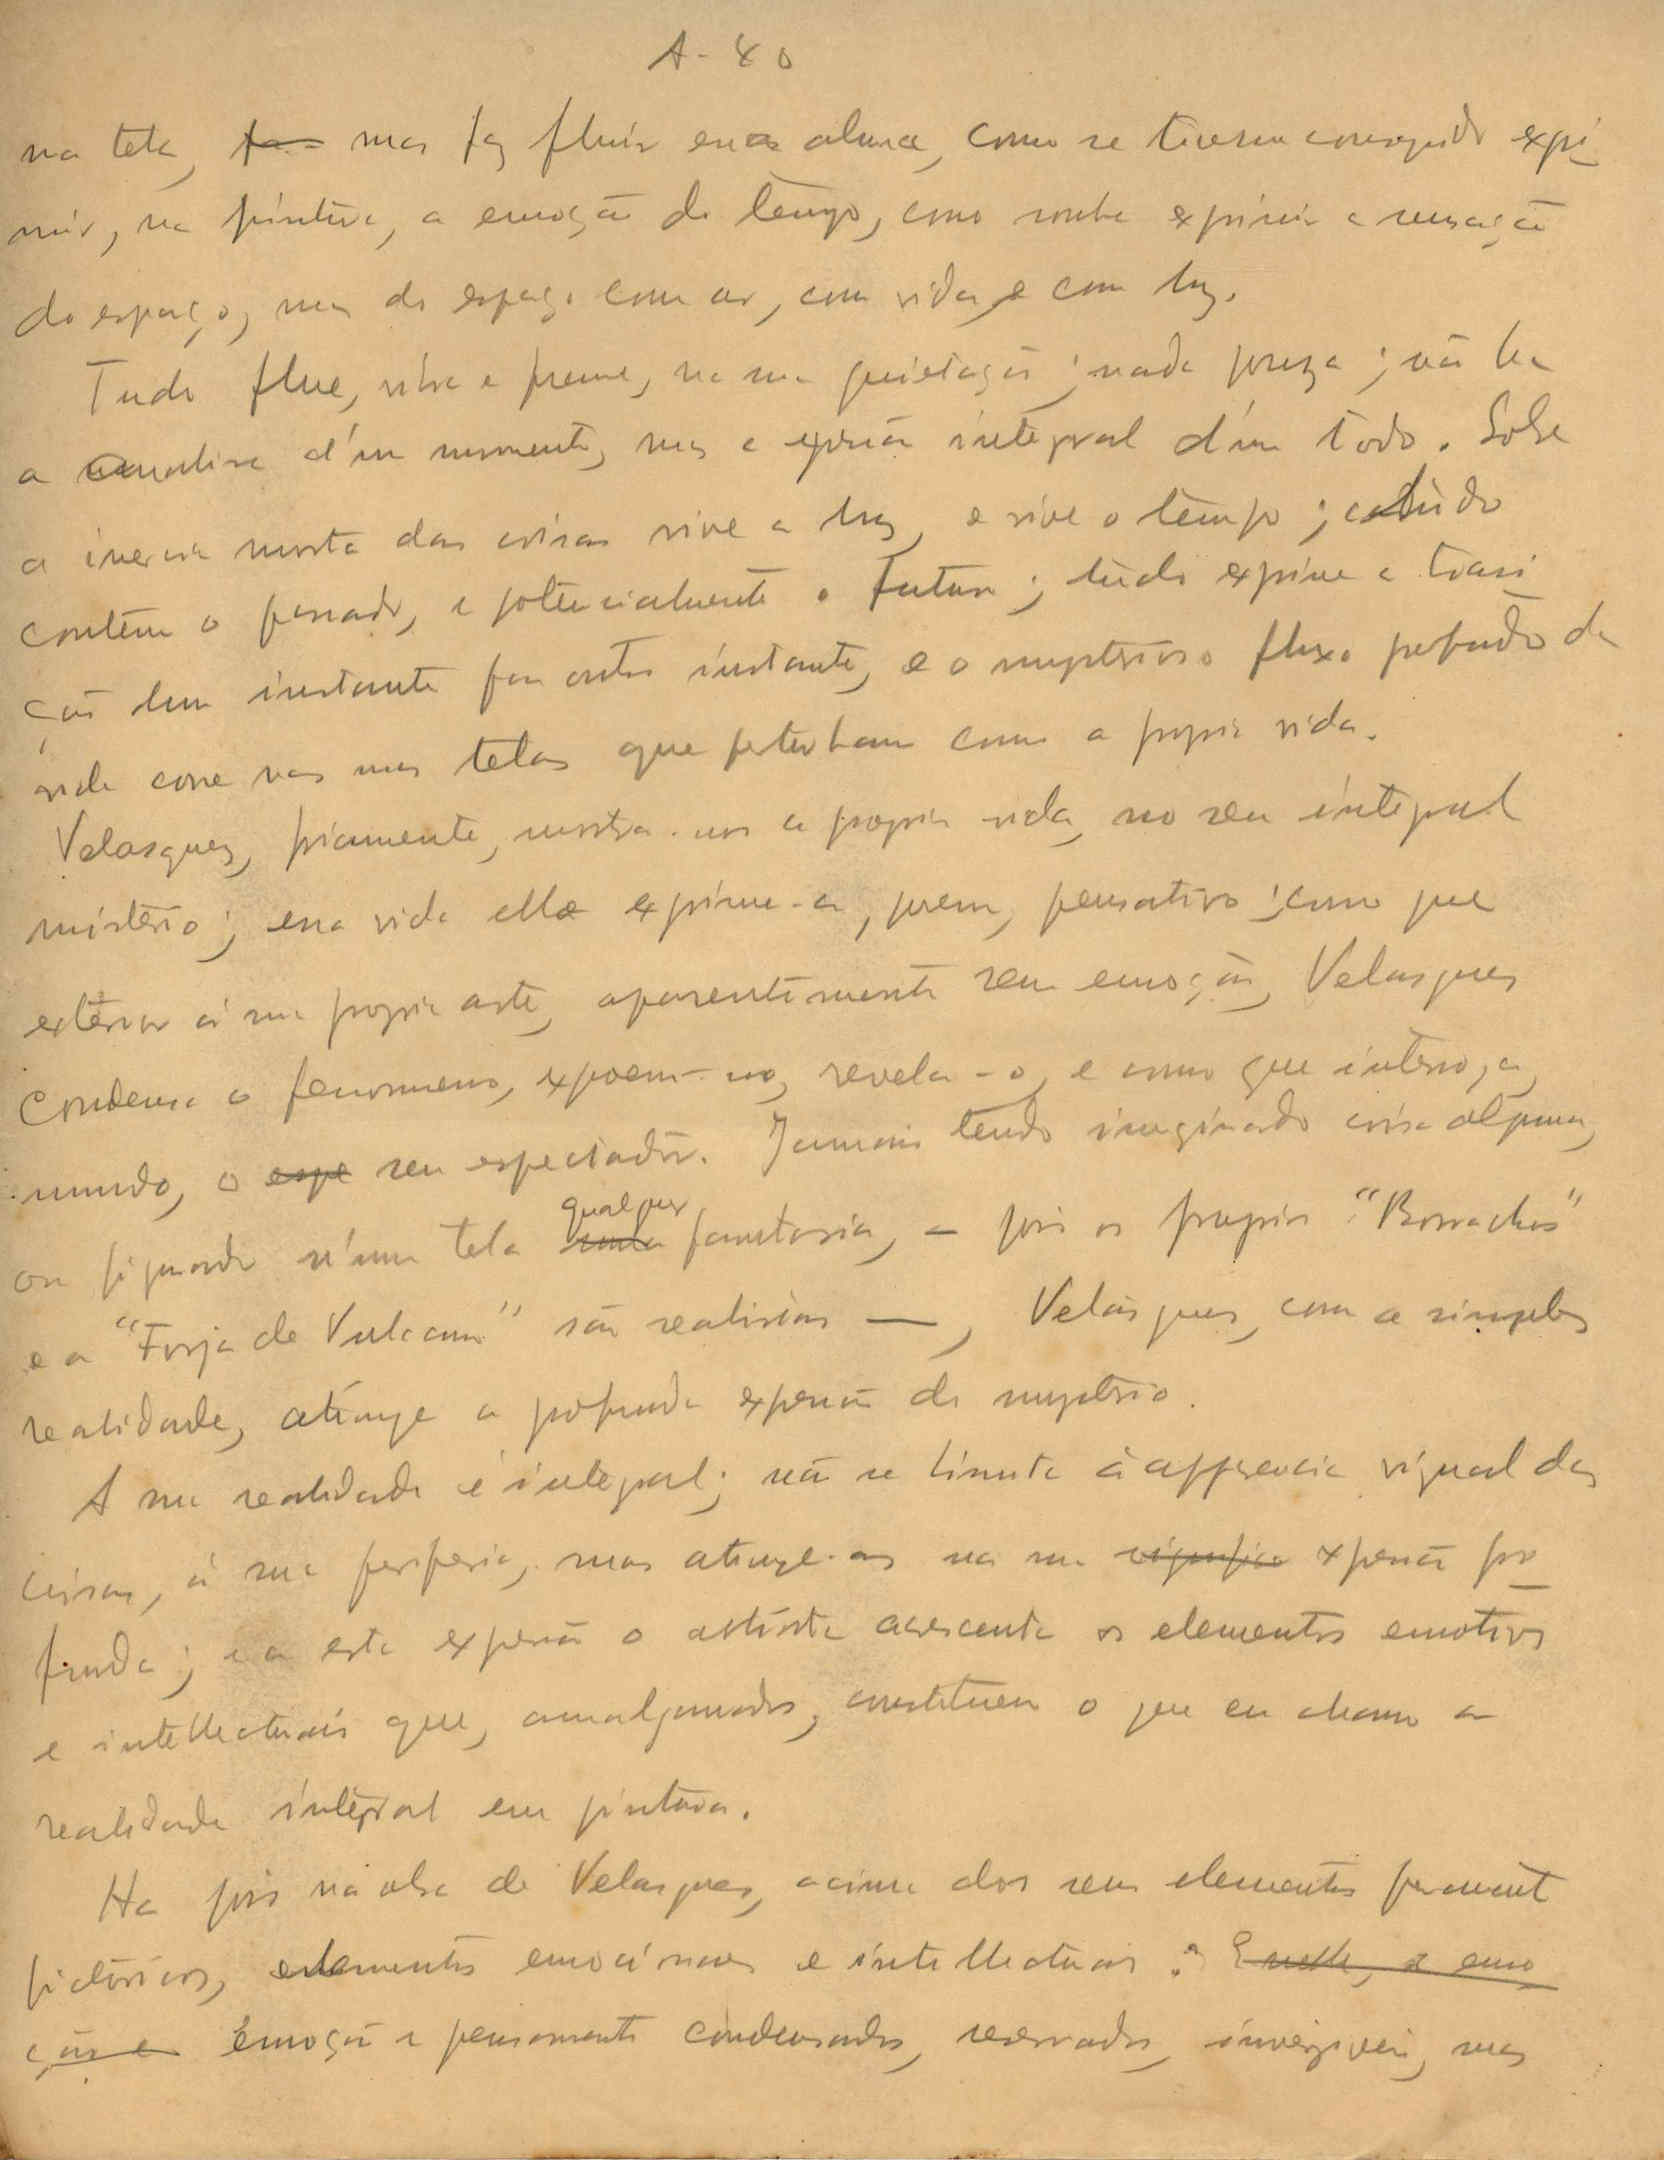 A-80
na tela, mas faz fluir essa alma, como se tivesse conseguido expri
mir, na pintura, a emoção do tempo, como soube exprimir a sensação
do espaço, mas do espaço com ar, com vida, e com luz.
Tudo flue, vibra e freme, na sua quietação; nada pousa; não ha
a analise d'um momento, mas a expressão integral d'um todo. Sobre
a inercia morta das coisas vive a luz, e vive o tempo; tudo
contém o passado, e potencialmente o futuro; tudo exprime a transi
ção dum instante para outro instante, e o mysterioso fluxo profundo da
vida corre nas suas telas que perturbam como a propria vida.
Velasquez, friamente, mostra-nos a propria vida, no seu integral
mistério; essa vida elle exprime-a, porem, pensativo; como que
exterior á sua propria arte, aparentemente sem emoção, Velasques
condensa o fenomeno, expoem-no, revela-o, e como que interroga,
mudo, o espe seu espectador. Jamais tendo imaginado coisa alguma,
ou figurado n'uma tela uma qualquer fantasia, — pois os proprios "Borrachos"
e a "Forja de Vulcano" são realistas —, Velásques, com a simples
realidade, atinge a profunda expressão do mysterio.
A sua realidade é integral; não se limita á apparencia visual das
coisas, á sua periferia, mas atinge-as na sua significa expressão pro
funda; e a esta expressão o artista acrescenta os elementos emotivos
e intellectuais que, amalgamados, constituem o que eu chamo a
realidade integral em pintura.
Ha pois na obra de Velasques, acima dos seus elementos puramente
pictóricos, elementos emocionaes e intellectuais: emo
ção e Emoção e pensamento condensados, reservados, invisiveis, mas